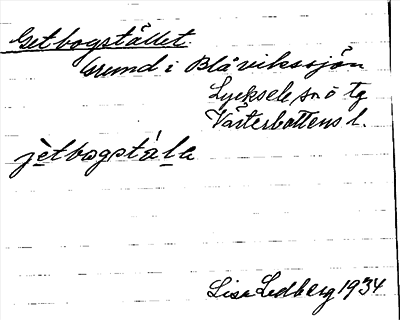 Getbogstället
grund i Blåvikssjön
Lycksele sn o tg
Västerbottens l.
jètbogstála
Lisa Lidberg 1934